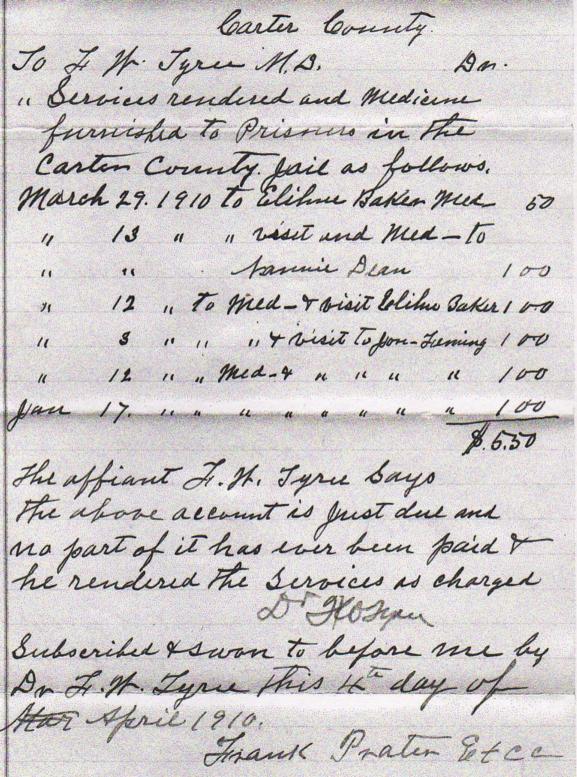 Carter County.
To F. W. Tyree M.D. Dr.
" Services rendered and Medicine
furnished to Prisners in the
Carter County. Jail as follows.
March 29. 1910 to Elihue Baker Med 50
" 13 " " visit and Med — to
" " Nannie Dean 1 00
" 12 " to Med — & visit Elihue Baker 1 00
" 3 " " " & visit to Jon - 1 00
" 12 " " Med - & " " " " 1 00
Jan 17. " " " " " " " 1 00
$5.50
The affiant F. W. Tyree Says
the above account is Just due and
no part of it has ever been paid &
he rendered the Services as charged
Dr
Subscribed & swon to before me by
Dr F. W. Tyree this 4th day of
Mar April 1910.
Frank Prater